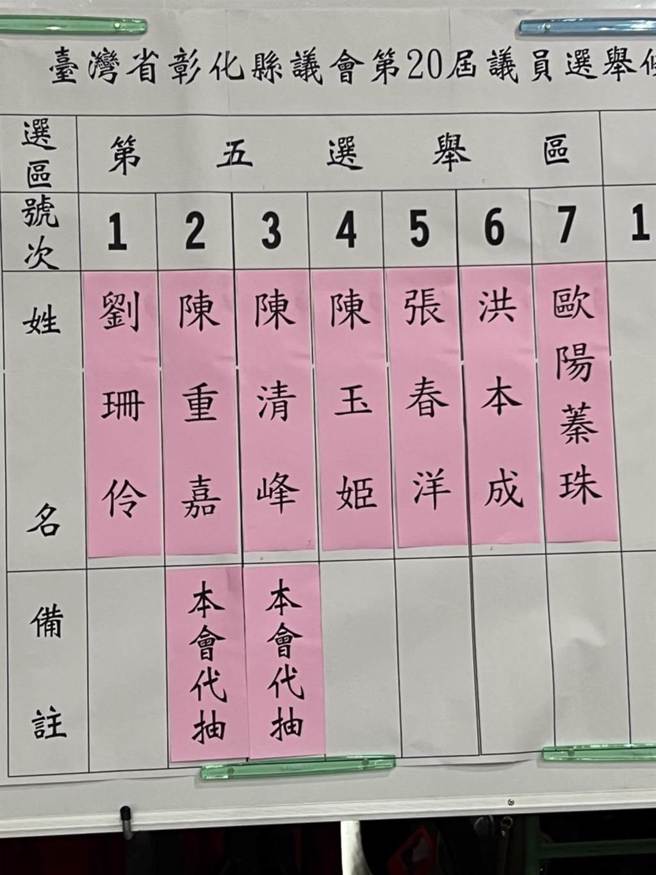 臺灣省彰化縣議會第20屆議員選舉候
選區 第五選舉區
號次 1 2 3 4 5 6 7 1
姓名
劉珊伶
陳重嘉
陳清峰
陳玉姬
張春洋
洪本成
歐陽蓁珠
備註
本會代抽
本會代抽